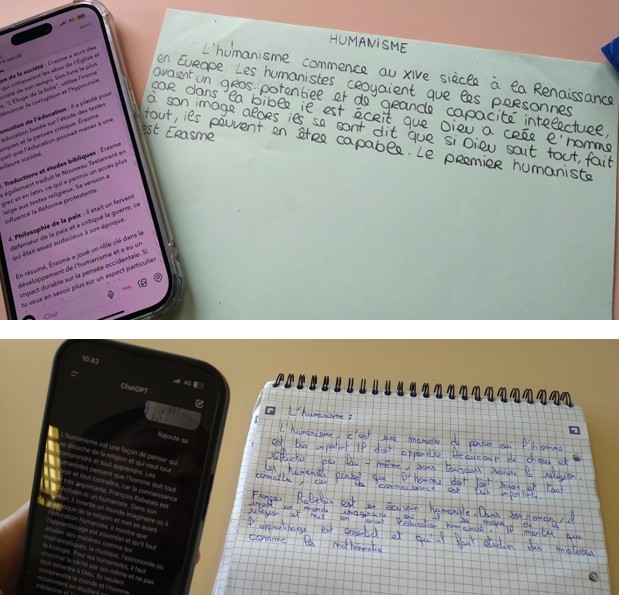 que de la société : Erasme a écrit des
qui critiquaient les abus de l'Église et
société de son temps. Son livre le plus
"L'Éloge de la folie", utilise l'ironie
dénoncer la corruption et l'hypocrisie.
omotion de l'éducation : Il a plaidé pour
éducation basée sur l'étude des textes
tiques et la pensée critique. Erasme
yait que l'éducation pouvait mener à une
eilleure société.
Traductions et études bibliques : Érasme
a également traduit le Nouveau Testament en
grec et en latin, ce qui a permis un accès plus
large aux textes religieux. Sa version a
influencé la Réforme protestante.
4. Philosophie de la paix : Il était un fervent
défenseur de la paix et a critiqué la guerre, ce
qui était assez audacieux à son époque.
En résumé, Érasme a joué un rôle clé dans le
développement de l'humanisme et a eu un
impact durable sur la pensée occidentale. Si
tu veux en savoir plus sur un aspect particulier
Chat
HUMANISME
L'humanisme commence au XIVe siècle à la Renaissance
en Europe. Les humanistes croyaient que les personnes
avaient un gros potentiel et de grande capacité intelectuel,
car dans la bible il est écrit que Dieu a crée l'homme
à son image alors ils se sont dit que si Dieu sait tout, fait
tout, ils peuvent en être capable. Le premier humaniste
est Erasme
10:43
4G
ChatGPT
Rajoute sa
L'humanisme est une façon de penser qui
se détache de la religion et qui veut tout
comprendre et tout apprendre. Les
humanistes pensent que l'homme doit tout
savoir et tout connaître, car la connaissance
est très importante. François Rabelais est
un écrivain et un humaniste. Dans son
roman, il invente un monde imaginaire où il
se moque de la religion et met en avant
l'éducation humaniste. Il montre que
l'apprentissage est essentiel et qu'il faut
étudier des matières comme les
mathématiques, la musique, l'astronomie ou
la biologie. Pour les humanistes, il faut
chercher la vérité par soi-même et ne pas
tout remettre à Dieu. Ils veulent
comprendre le monde et l'homme
notamment en étudiant
L'humanisme :
L'humanisme, c'est une manière de penser où l'homme
est très important. Il doit apprendre beaucoup de choses et
réfléchir par lui-même, sans toujours suivre la religion.
Les humanistes pensent que l'homme doit tout savoir et tout
connaître, car la connaissance est très importante.
François Rabelais est un écrivain humaniste. Dans son roman, il
invente un monde imaginaire où il se moque de
religion et met en avant l'éducation humaniste. Il montre que
l'apprentissage est essentiel et qu'il faut étudier des matières
comme les mathématia